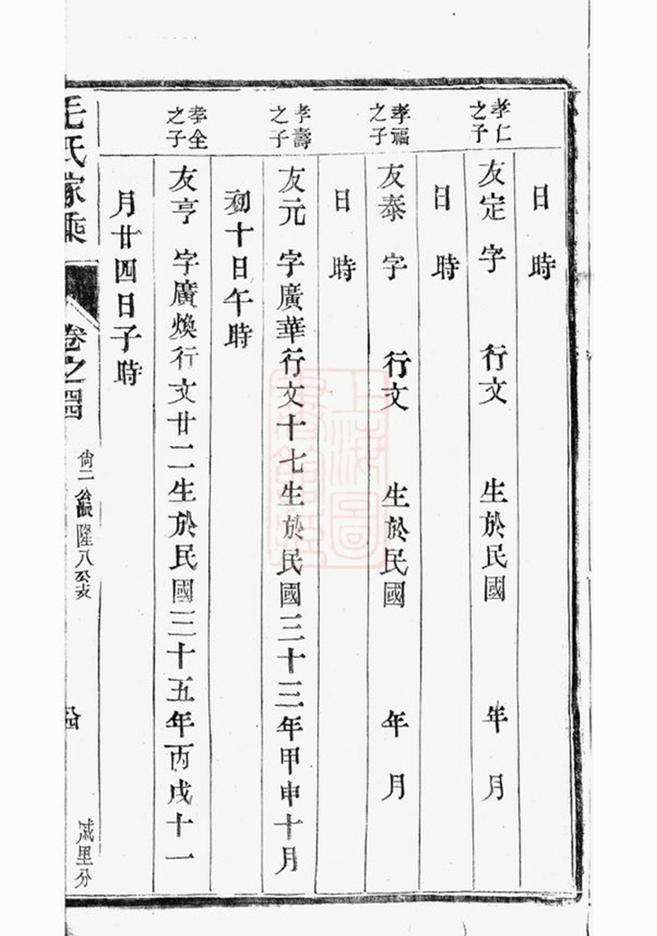 日　時
孝仁之子
友定　字　　行文　　生於民國　　年　月
日　時
孝福之子
友泰　字　　行文　　生於民國　　年　月
日　時
孝壽之子
友元　字廣華行文十七生於民國三十三年甲申十月
初十日午時
孝全之子
友亨　字廣煥行文廿二生於民國三十五年丙戌十一
月廿四日子時
毛氏家乘
卷之四
上海圖書館藏